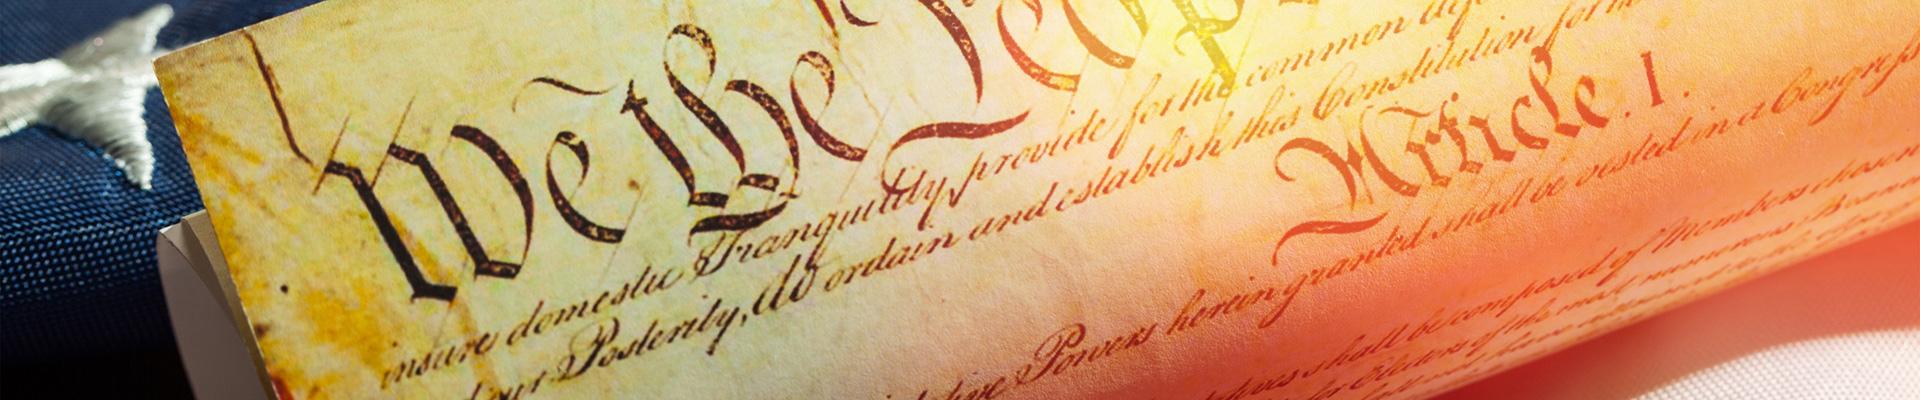 We the People
insure domestic Tranquility, provide for the common
our Posterity, do ordain and establish this Constitution for
Article. I.
Powers herein granted shall be vested in a Congress
shall be composed of Members chosen
for Electors of the most numerous